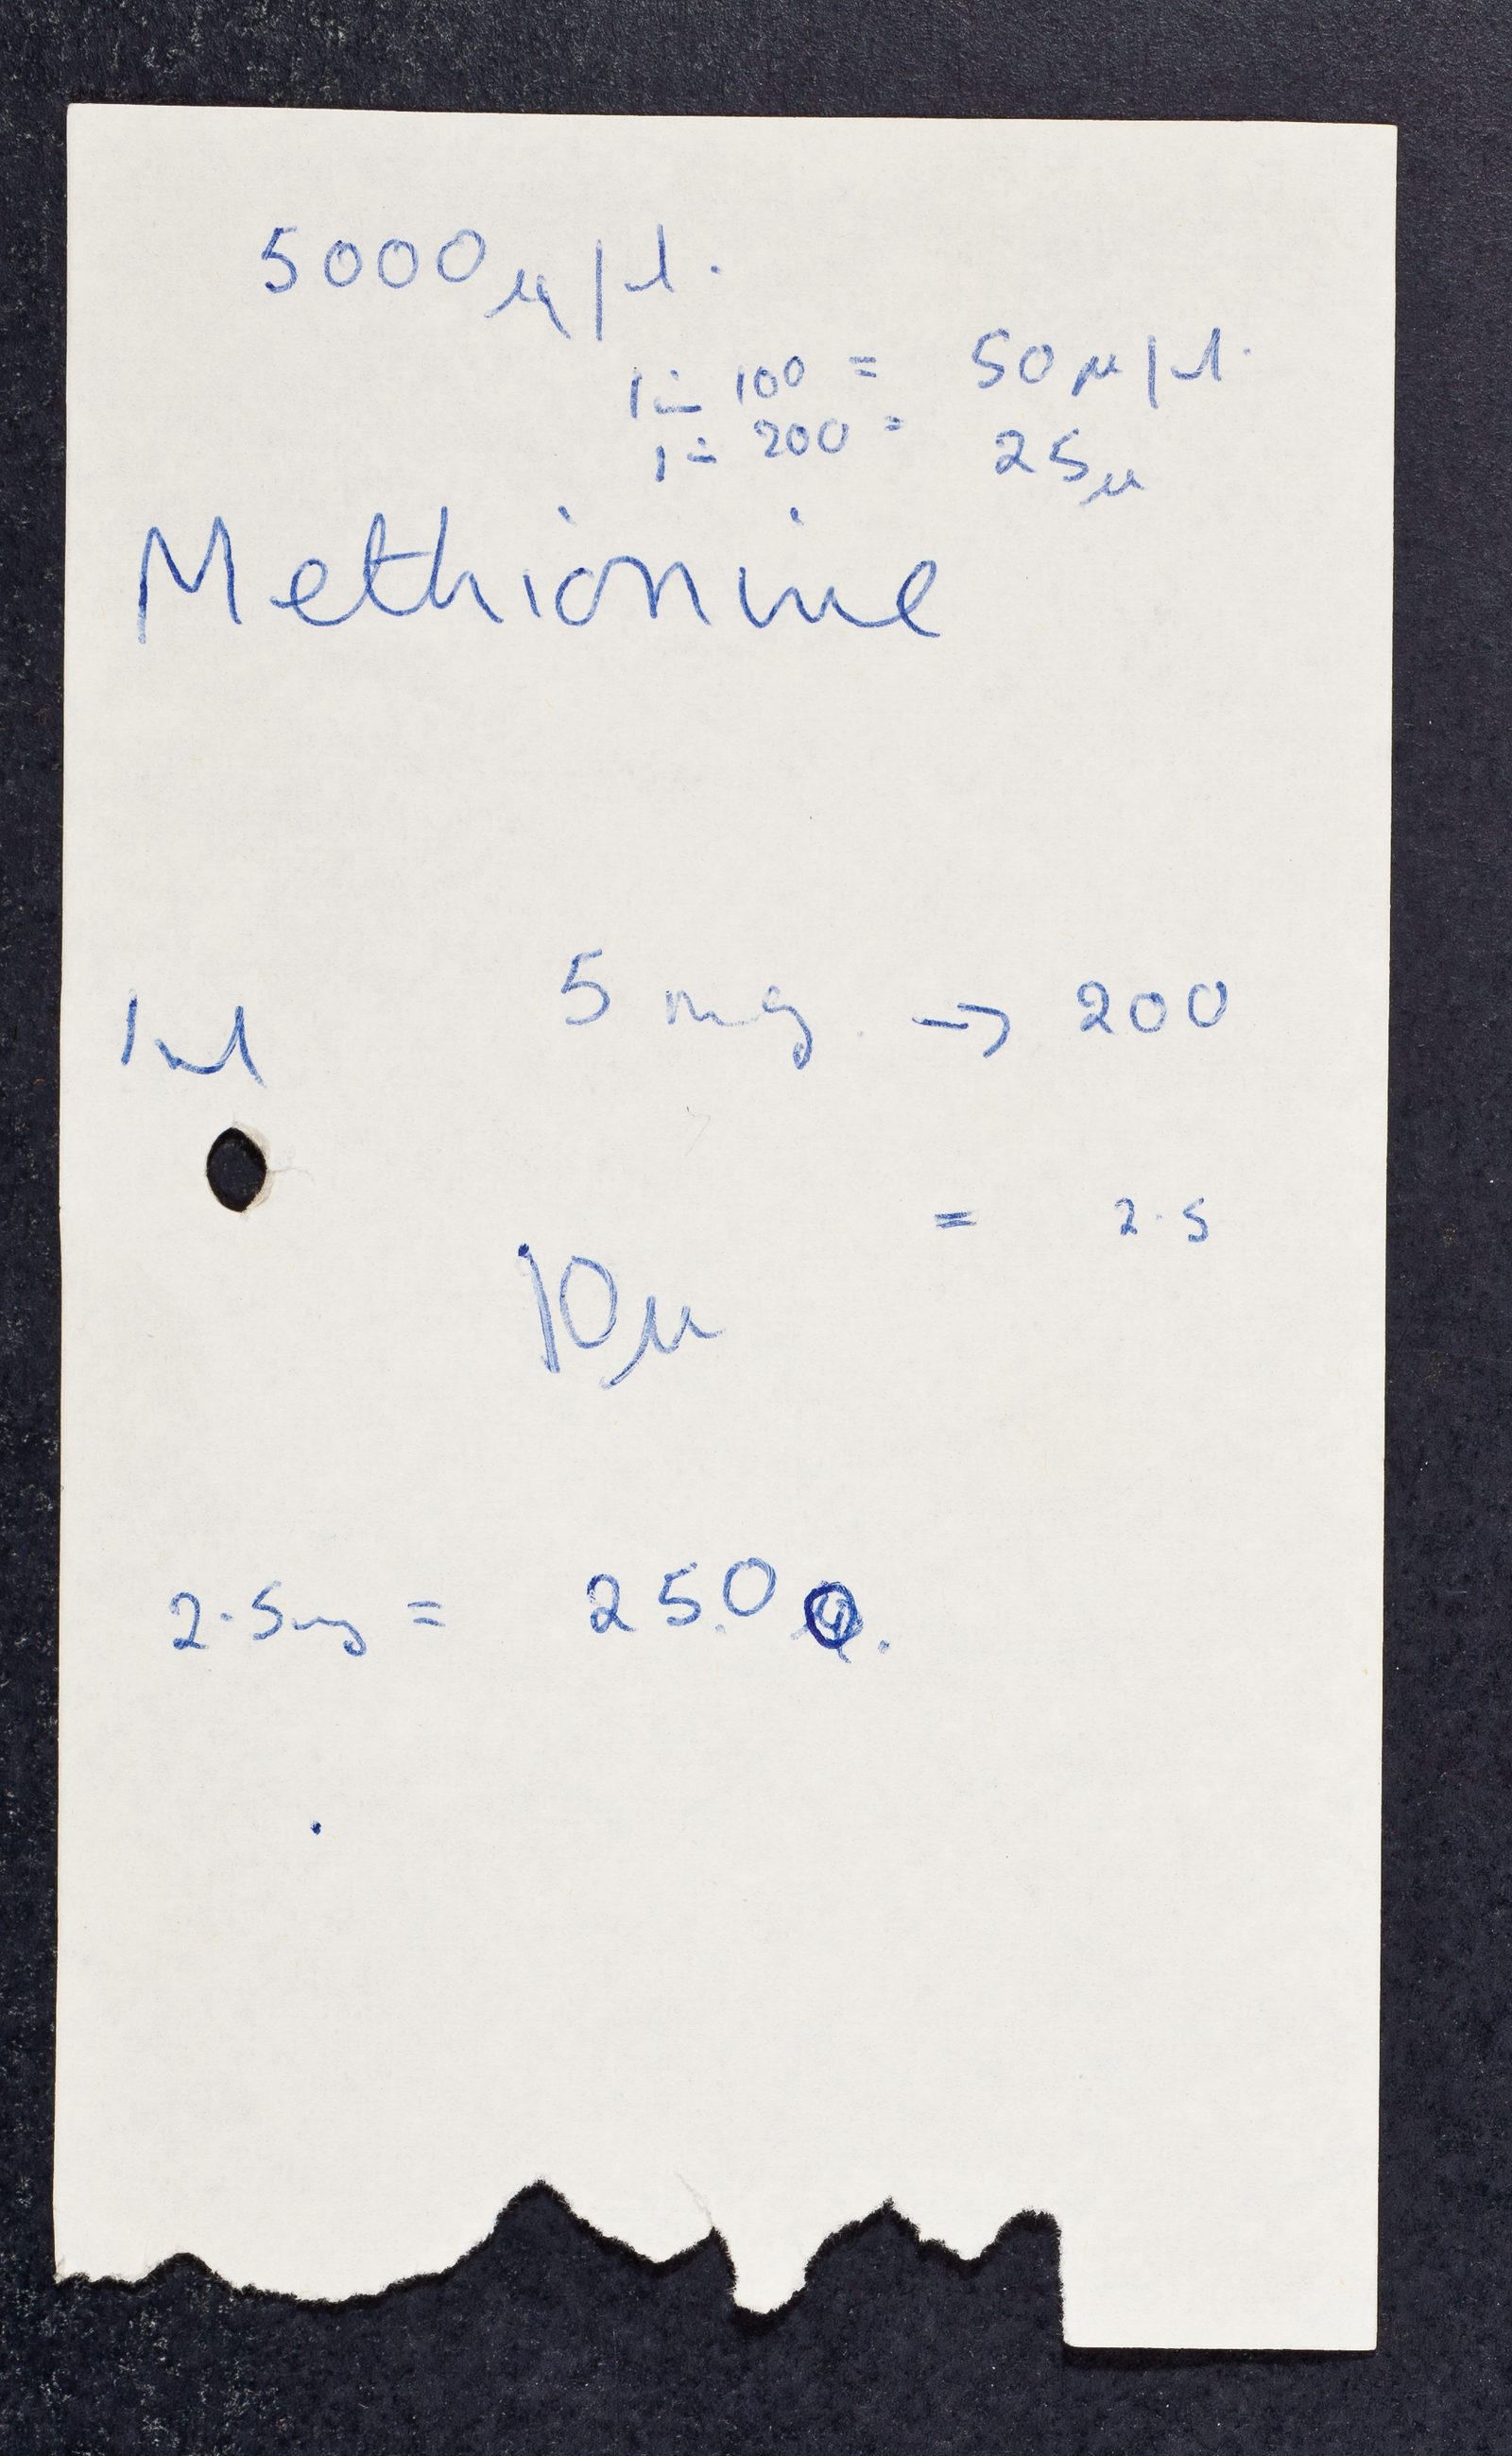 5000 μg/ml.
1 in 100 = 50 μ/ml.
1 in 200 = 25 μ
Methionine
1 ml 5 mg. → 200
= 2.5
10 μ
2.5 mg = 2500.